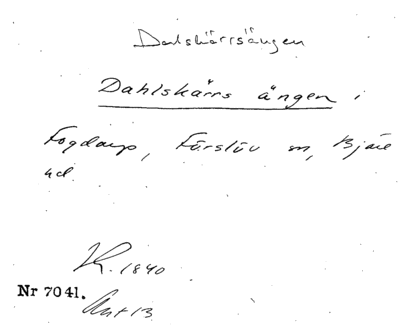 Dalskärrsängen
Dahlskärrs ängen i
Fogdarp, Förslöv sn, Bjäre
hd.
1840
Nr 7041.
Akt 13